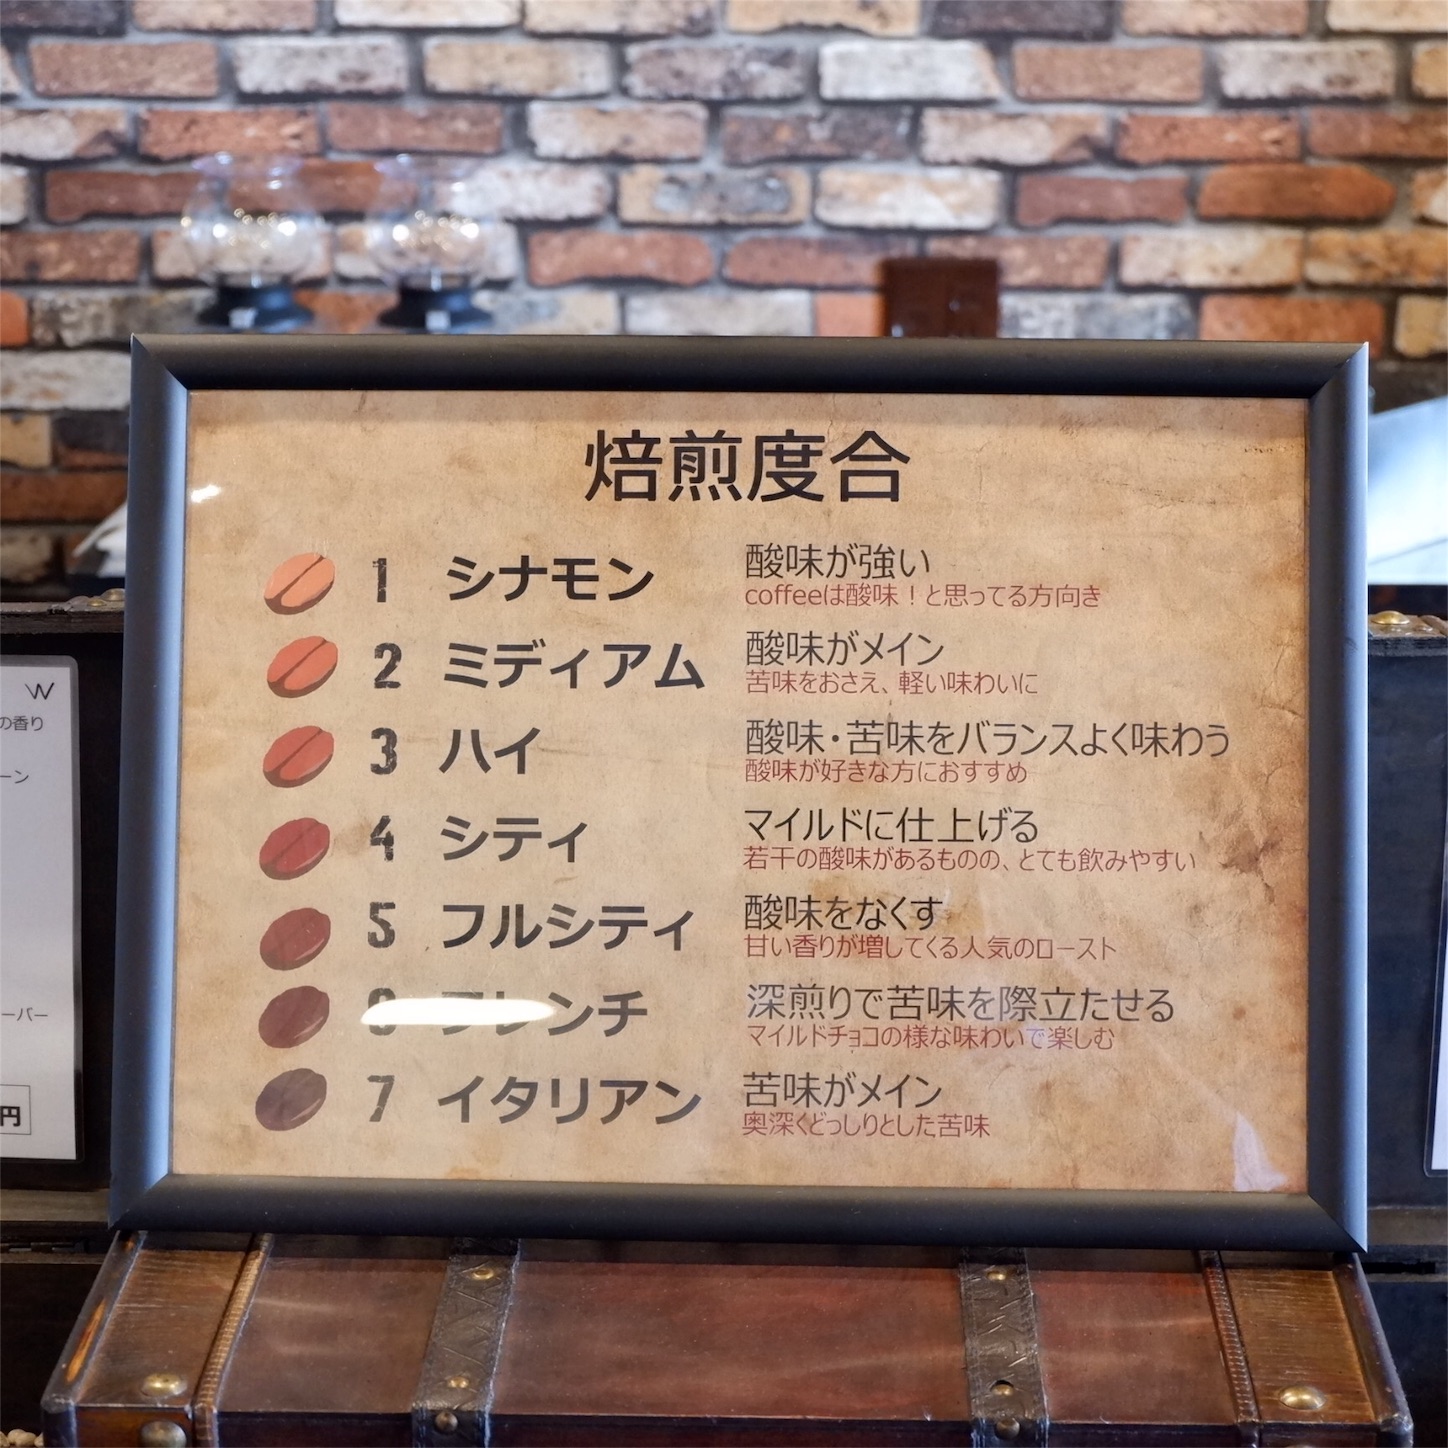 焙煎度合
1 シナモン 酸味が強い
coffeeは酸味！と思ってる方向き
2 ミディアム 酸味がメイン
苦味をおさえ、軽い味わいに
3 ハイ 酸味・苦味をバランスよく味わう
酸味が好きな方におすすめ
4 シティ マイルドに仕上げる
若干の酸味があるものの、とても飲みやすい
5 フルシティ 酸味をなくす
甘い香りが増してくる人気のロースト
6 フレンチ 深煎りで苦味を際立たせる
マイルドチョコの様な味わいで楽しむ
7 イタリアン 苦味がメイン
奥深くどっしりとした苦味
W
の香り
ーン
ーバー
円